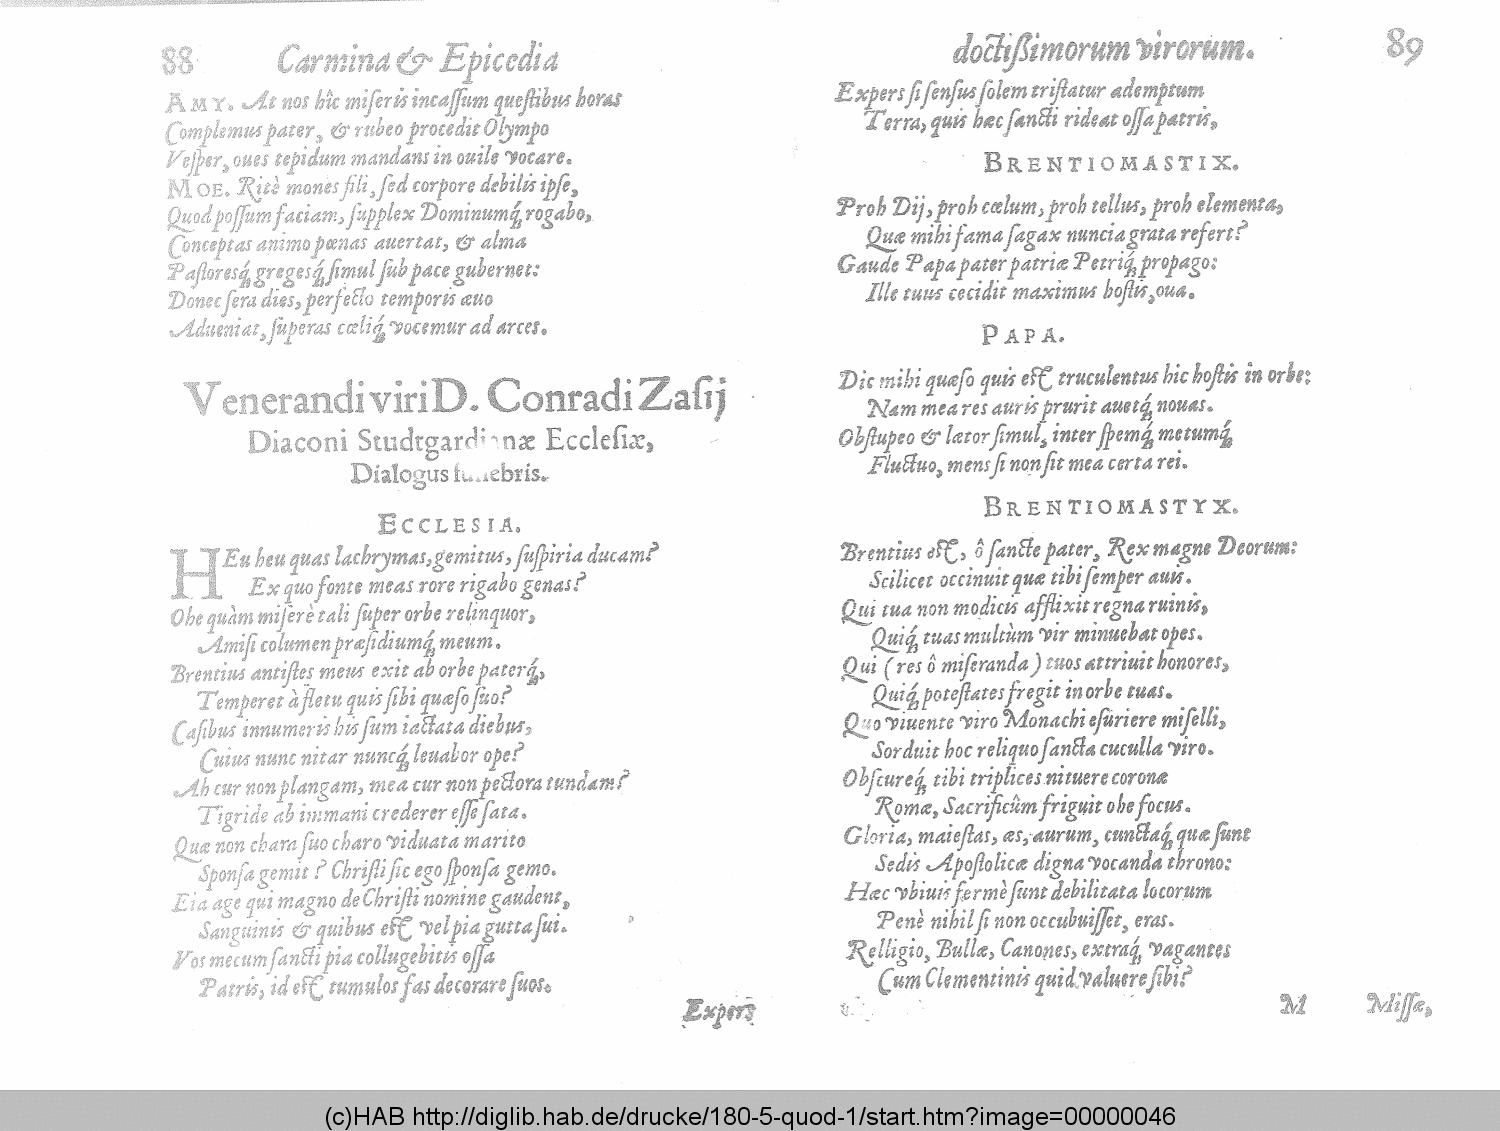 88 Carmina & Epicedia
AMY. At nos hîc miseris incassum questibus horas
Complemus pater, & rubeo procedit Olympo
Vesper, oues tepidum mandans in ouile vocare.
MOE. Ritè mones fili, sed corpore debilis ipse,
Quod possum faciam, supplex Dominumq́; rogabo,
Conceptas animo pœnas auertat, & alma
Pastoresq́; gregesq́; simul sub pace gubernet:
Donec sera dies, perfecto temporis æuo
Adueniat, superas cœliq́; vocemur ad arces.
Venerandi viri D. Conradi Zasij
Diaconi Studtgardianæ Ecclesiæ,
Dialogus funebris.
ECCLESIA.
HEu heu quas lachrymas, gemitus, suspiria ducam?
Ex quo fonte meas rore rigabo genas?
Ohe quàm miserè tali super orbe relinquor,
Amisi columen præsidiumq́; meum.
Brentius antistes meus exit ab orbe paterq́;,
Temperet à fletu quis sibi quæso suo?
Casibus innumeris his sum iactata diebus,
Cuius nunc nitar nuncq́; leuabor ope?
Ah cur non plangam, mea cur non pectora tundam?
Tigride ab immani crederer esse sata.
Quæ non chara suo charo viduata marito
Sponsa gemit? Christi sic ego sponsa gemo.
Eia age qui magno de Christi nomine gaudent,
Sanguinis & quibus est vel pia gutta sui.
Vos mecum sancti pia collugebitis ossa
Patris, id est tumulos fas decorare suos.
Expers
doctissimorum virorum. 89
Expers si sensus solem tristatur ademptum
Terra, quis hæc sancti rideat ossa patris,
BRENTIOMASTIX.
Proh Dij, proh cœlum, proh tellus, proh elementa,
Quæ mihi fama sagax nuncia grata refert?
Gaude Papa pater patriæ Petriq́; propago:
Ille tuus cecidit maximus hostis, oua.
PAPA.
Dic mihi quæso quis est truculentus hic hostis in orbe:
Nam mea res auris prurit auetq́; nouas.
Obstupeo & lætor simul, inter spemq́; metumq́;
Fluctuo, mens si non sit mea certa rei.
BRENTIOMASTYX.
Brentius est, ô sancte pater, Rex magne Deorum:
Scilicet occinuit quæ tibi semper auis.
Qui tua non modicis afflixit regna ruinis,
Quiq́; tuas multùm vir minuebat opes.
Qui (res ô miseranda) tuos attriuit honores,
Quiq́; potestates fregit in orbe tuas.
Quo viuente viro Monachi esuriere miselli,
Sorduit hoc reliquo sancta cuculla viro.
Obscureq́; tibi triplices nituere coronæ
Romæ, Sacrificûm friguit ohe focus.
Gloria, maiestas, æs, aurum, cunctaq́; quæ sunt
Sedis Apostolicæ digna vocanda throno:
Hæc vbiuis fermè sunt debilitata locorum
Penè nihil si non occubuisset, eras.
Relligio, Bullæ, Canones, extraq́; vagantes
Cum Clementinis quid valuere sibi?
M Missæ,
(c)HAB http://diglib.hab.de/drucke/180-5-quod-1/start.htm?image=00000046